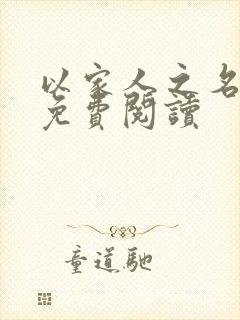 以家人之名
免費閱讀
童道馳